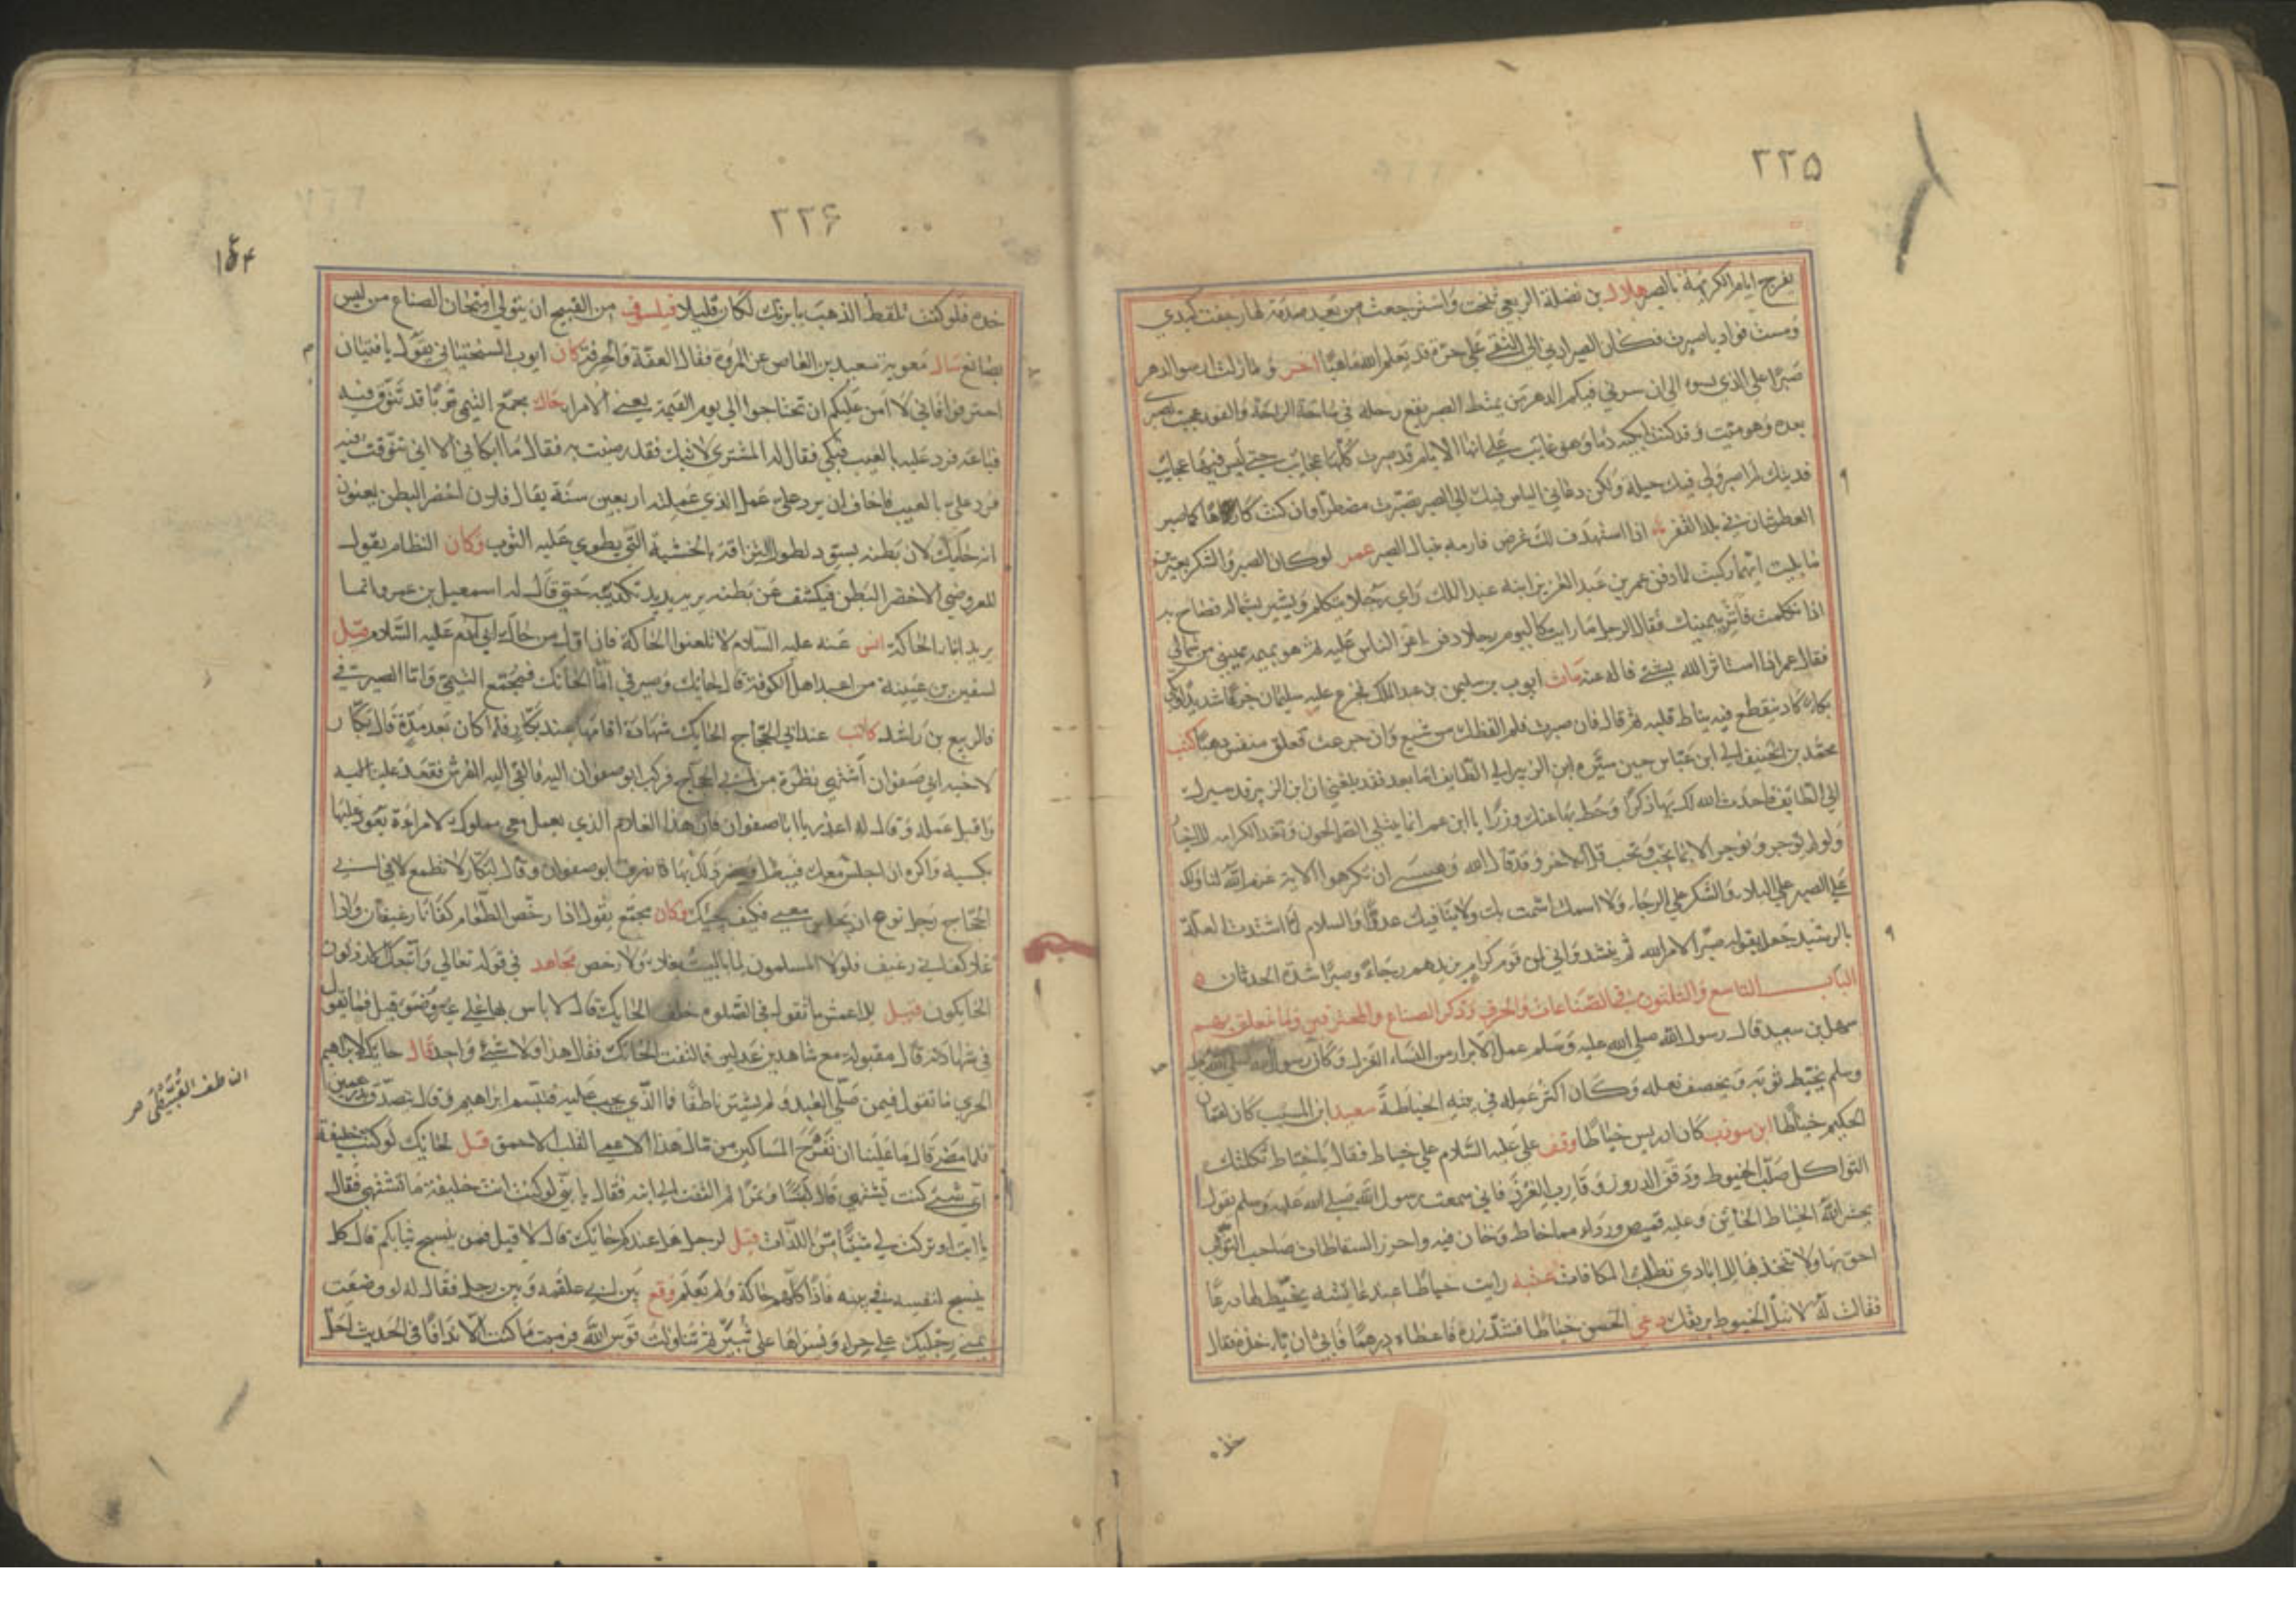 ٢٢٥
يفرج ايام الكريهة بالصبر هلال بن نضلة الربعي نخت واسترجعت من بعد صدمة لها رجفت كبدي
ومست فوادي باصبرت فكان الصبر ادنى الى التقى على حرة قد يعلم الله ماهيا اخر وما زلت ارسو الدهر
صبرا على الذي يسوء الى ان سرني فيكم الدهر من يمتط الصبر يقع رحله في ساحة الراحة والفوز عجبت لصبري
بعده وهو ميت وقد كنت ابكيه دما وهو غايب على انها الايام قد صرن كلها عجايب حتى ليس فيها عجايب
فديتك لم اصبر ولي فيك حيلة ولكن دعاني الياس فيك الى الصبر تصبرت مضطرا وان كنت كارها كما صبر
العطشان في بلد القفر اذا استهدف لك غرض فارمه بنبال الصبر عمر لو كان الصبر والشكر بعيرين
ما باليت ايهما ركبت لما دفن عمر بن عبد العزيز ابنه عبد الملك راى رجلا يتكلم ويشير بشماله فصاح به
اذا تكلمت فاشر بيمينك فقال الرجل ما رايت كاليوم رجلا دفن اعز الناس عليه ثم هو يهمه يميني من شمالي
فقال عمر اذا استاثر الله بشئ فاله عنه مات ايوب بن سليمن بن عبد الملك فجزع عليه سليمان جزعا شديدا وبكى
بكاء كاد ينقطع فيه نياط قلبه ثم قال فان صبرت فلم الفظك من شبع وان جزعت فعلق منفس ذهبا كتب
محمد بن الحنيف الى ابن عباس حين سيره ابن الزبير الى الطايف اما بعد فقد بلغني ان ابن الزبير قد سيرك
الى الطايف فاحدث الله لك بها ذكرا وحط بها عنك وزرا يا ابن عم انما يبتلى الصالحون وتعد الكرامه للاخيار
ولو لم توجر وتوجر الا فيما تحب ويحب قل الاجر وقد قال الله وعسى ان تكرهوا الاية عزم الله لنا ولك
على الصبر على البلاء والشكر على الرخاء ولا اشمت بك ولا بنا فيك عدوا والسلام لما اشتدت العلة
بالرشيد جعل يقول صبرا لامر الله ثم ينشد واني لمن قوم كرام يزيدهم رجاء وصبرا شدة الحدثان
الباب التاسع والثلثون في الصناعات والحرف وذكر الصناع والمحترفين وما تعلق بهم
سهل بن سعيد قال رسول الله صلى الله عليه وسلم عمل الابرار من النساء الغزل وكان رسول الله صلى الله عليه
وسلم يخيط ثوبه ويخصف نعله وكان اكثر عمله في بيته الخياطة سعيد ابن المسيب كان لقمان
الحكيم خياطا ابن سوذب كان ادريس خياطا وقف علي عليه السلام على خياط فقال يا خياط ثكلتك
الثواكل صلب الخيوط ودقق الدروز وقارب الغرز فاني سمعت رسول الله صلى الله عليه وسلم يقول
يحشر الله الخياط الخائن وعليه قميص ورداء مما خاط وخان فيه واحرز السقاطات صاحب الثوب
احق بها ولا تتخذ بها الايادي تطلب المكافات عتبه رايت خياطا عند عائشه يخيط لها درعا
فقالت له لا تبل الخيوط بريقك دعي الحسن خياطا فشد زره فاعطاه درهما فابى ان ياخذه فقال
خذه
٢٢۶
١۶۴
خذه فلو كنت تلقط الذهب بابرتك لكان قليلا فيلسوف من القبيح ان يتولى امتحان الصناع من ليس
بصانع سال معوية سعيد بن العاص عن المروة فقال العفة والحرفة كان ايوب السختياني يقول يا فتيان
احترفوا فاني لا امن عليكم ان تحتاجوا الى يوم القيمة يعني الامراء حاك مجمع التيمي ثوبا قد تنوق فيه
فباعه فرد عليه بالعيب فبكى فقال له المشتري لا تبك فقد رضيت به فقال ما ابكاني الا اني تنوقت فيه
فرد علي بالعيب فاخاف ان يرد علي عملي الذي عملته اربعين سنة يقال فلان اخضر البطن يعنون
انه حايك لان بطنه يسود لطول التزاقه بالخشبة التي يطوي عليه الثوب وكان النظام يقول
للعروضي الاخضر البطن فيكشف عن بطنه يريد بذلك تكذيبه حتى قال له اسمعيل بن عمرو انما
يريد ابناء الحاكة انس عنه عليه السلام لا تلعنوا الحاكة فان اول من حاك ابي ادم عليه السلام قيل
لسفين بن عيينة من اعبد اهل الكوفة قال حايك وصيرفي اما الحائك فمجمع التيمي واما الصيرفي
فالربيع بن راشد كانت عند ابي الحجاج الحايك شهادة اقامها عند بكار فلما كان بعد مدة قال بكار
لاخيه ابي صفوان اشتهي نظرة من ابي الحجاج فركب ابو صفوان اليه فالقى اليه الفرش فقعد على الميه
واقبل عمله وقال له اعذر يا ابا صفوان فان هذا الغلام الذي يعمل معي مملوك لامراة تعود عليها
بكسبه واكره ان اجلس معك فيبطل ويضر ذلك بها فانصرف ابو صفوان وقال لبكار لا تطمع لا في ابي
الحجاج رجل نوع ان يجلس معي فكيف يجيك وكان مجمع يقول اذا رخص الطعام كفانا رغيفان واذا
غلا كفاني رغيف فلولا المسلمون لما باليت بغلاء ولا رخص مجاهد في قوله تعالى واتبعك الارذلون
الحايكون قيل للاعمش ما تقول في الصلوة خلف الحايك قال لا باس بها على غير وضوء قيل فما تقول
في شهادته قال مقبولة مع شاهدين عدلين فالتفت الحائك فقال هذا ولا شئ واحد قال حايك لابراهيم
الحربي ما تقول فيمن صلى العيد ولم يشتر ناطفا ما الذي يجب عليه فتبسم ابراهيم وقال يتصدق بدرهمين
فلما مضى قال ما علينا ان نفرح المساكين من مال هذا الاعمى القلب الاحمق قيل لحايك لو كنت خليفة
اي شئ كنت تشتهي قال كبسا وتمرا ثم التفت الى ابنه فقال يا بني لو كنت انت خليفة ما تشتهي فقال
يا ابت او تركت لي شيئا من اللذات قيل لرجل هل عندكم حائك قال لا قيل فمن ينسج ثيابكم قال كل
ينسج لنفسه في بيته فاذا كلهم حاكة ولم يعلم وقع بين ابي علقمه وبين رجل فقال له لو وضعت
يمنى رجليك على حراء ويسراها على ثبير ثم تناولت قوس الله فرميت ما كنت الا ندافا في الحديث احل
الناطف القبيطى صر